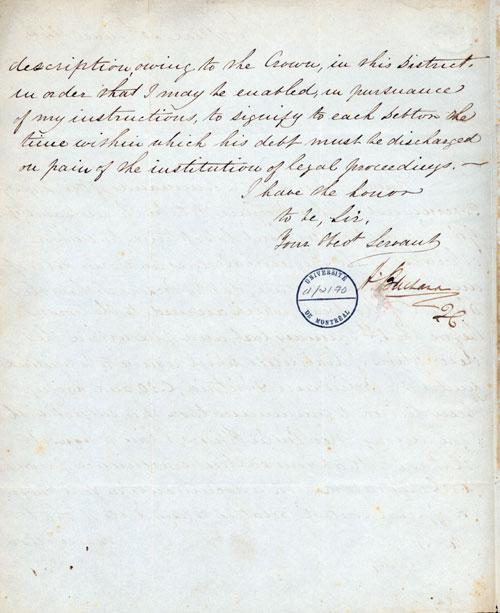 description, owing to the Crown, in this District,
in order that I may be enabled, in pursuance
of my instructions, to signify to each debtor the
time within which his debt must be discharged
on pain of the institution of legal proceedings. —
I have the honor
to be, Sir,
Your Obedt Servant
UNIVERSITÉ
DE MONTRÉAL
QC.